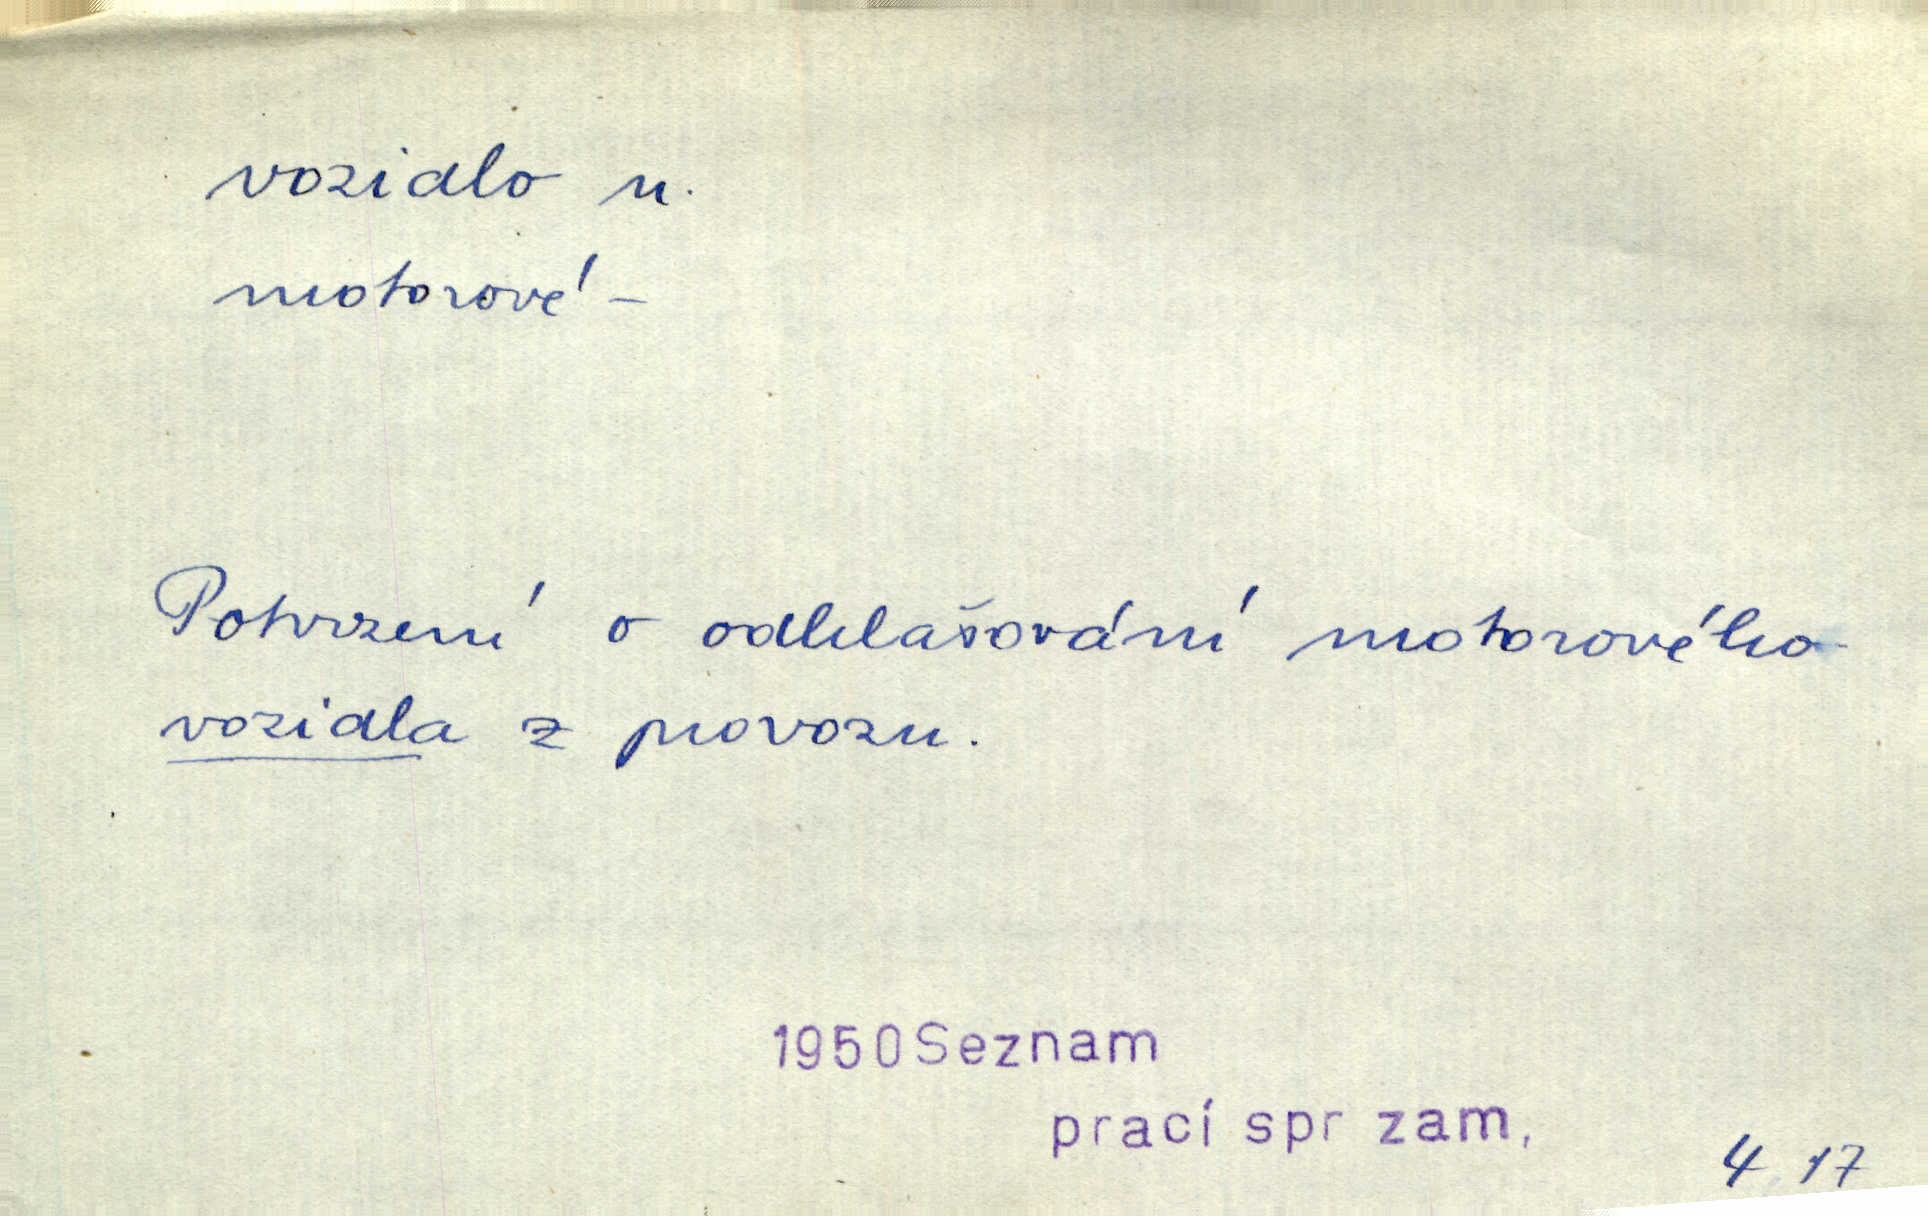 vozidlo n.
motorové –
Potvrzení o odhlašování motorového
vozidla z provozu.
1950 Seznam
prací spr zam,
4, 17